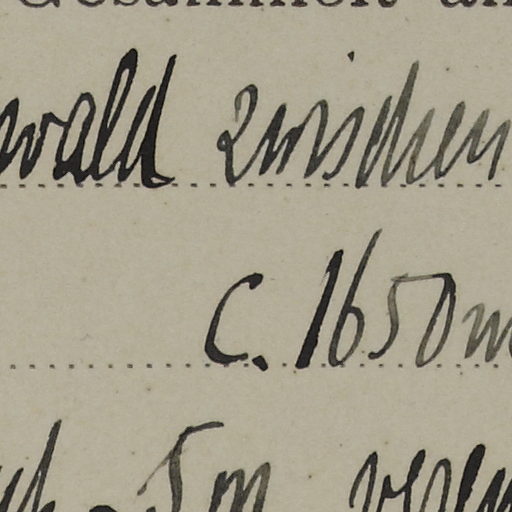 Gesammelt
wald zwischen
c. 1650 m
5 m